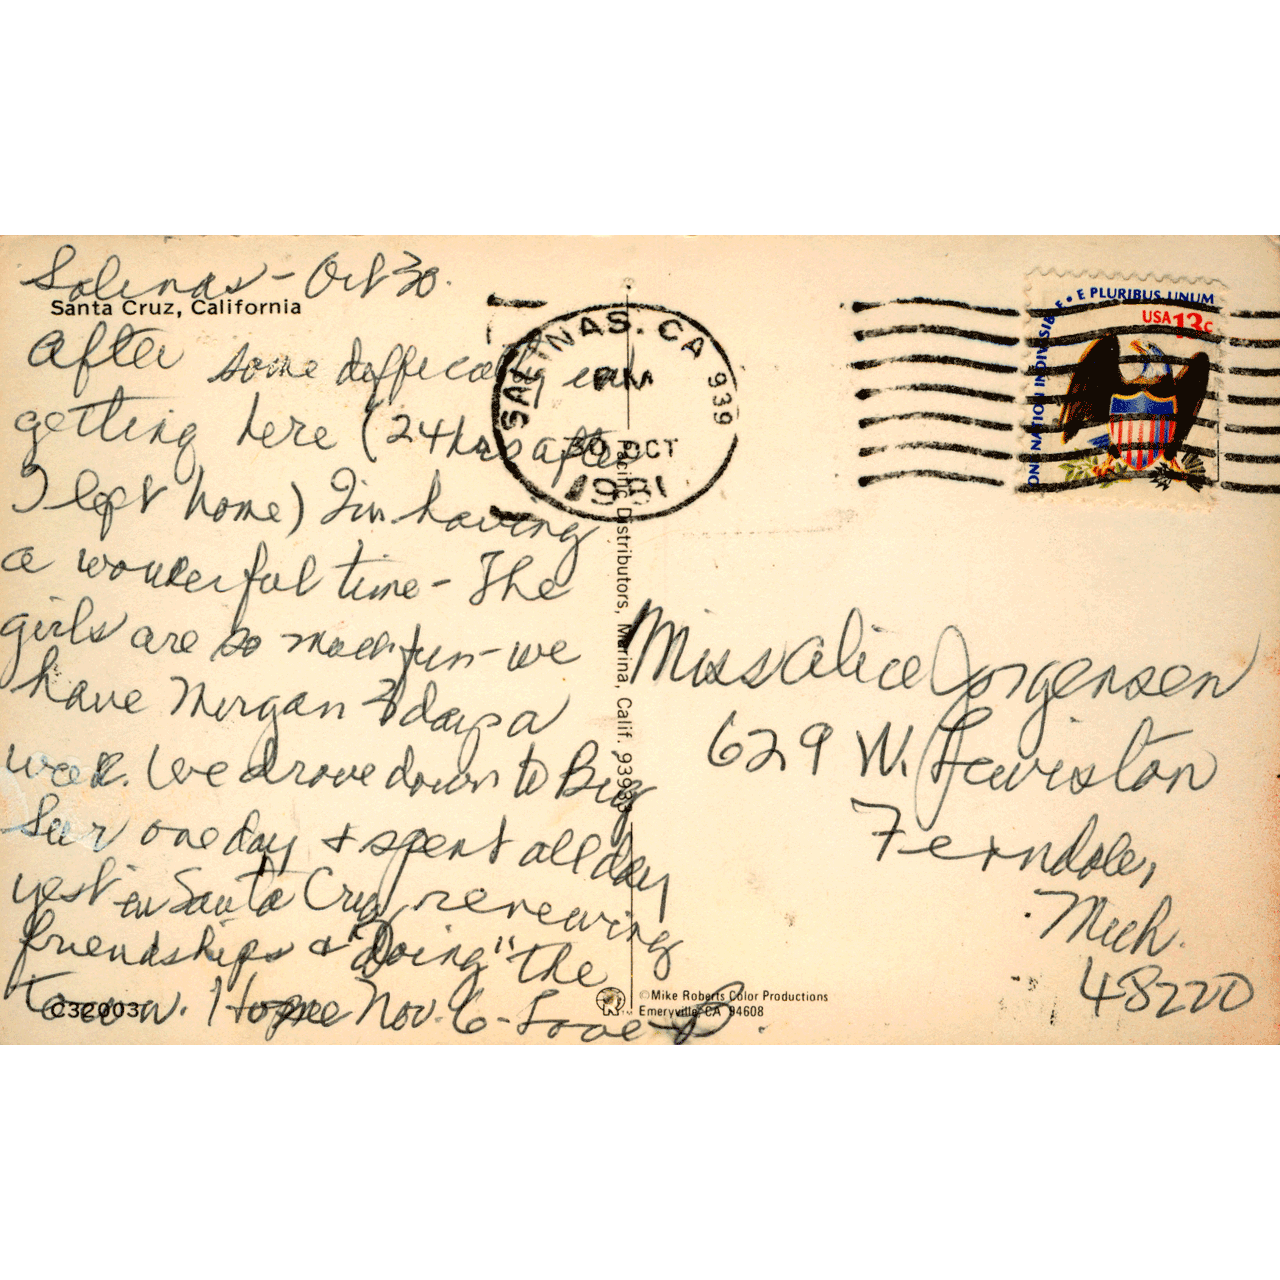 Salinas - Oct 30.
Santa Cruz, California
After some difficulty in
getting here (24 hrs after
I left home) I'm having
a wonderful time - The
girls are so much fun - we
have Morgan 3 days a
week. We drove down to Big
Sur one day & spent all day
yest in Santa Cruz, renewing
friendships & "Doing" the
town. Home Nov. 6 - Love
C32003
SALINAS, CA 939
PM
30 OCT
1981
Pacific Distributors, Marina, Calif. 93933
© Mike Roberts Color Productions
Emeryville, CA 94608
ONE NATION INDIVISIBLE • E PLURIBUS UNUM
USA 13c
Miss Alice Jorgensen
629 W. Lewiston
Ferndale,
Mich.
48220